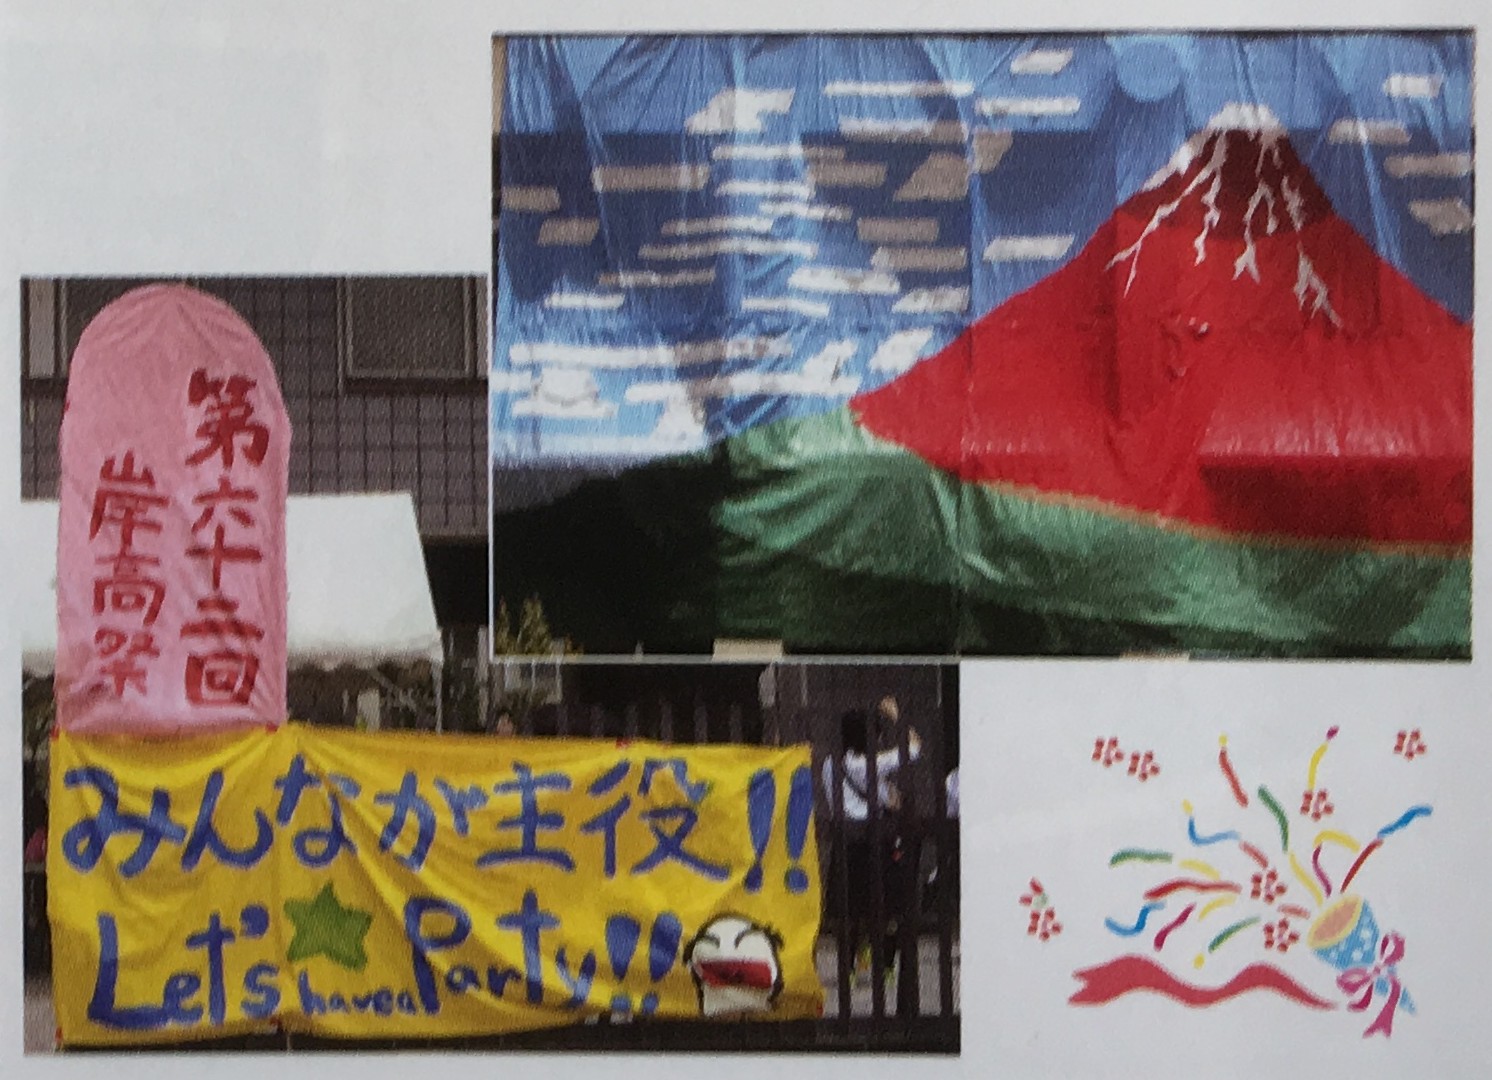 第六十三回
岸高祭
みんなが主役!!
Let's have a Party!!